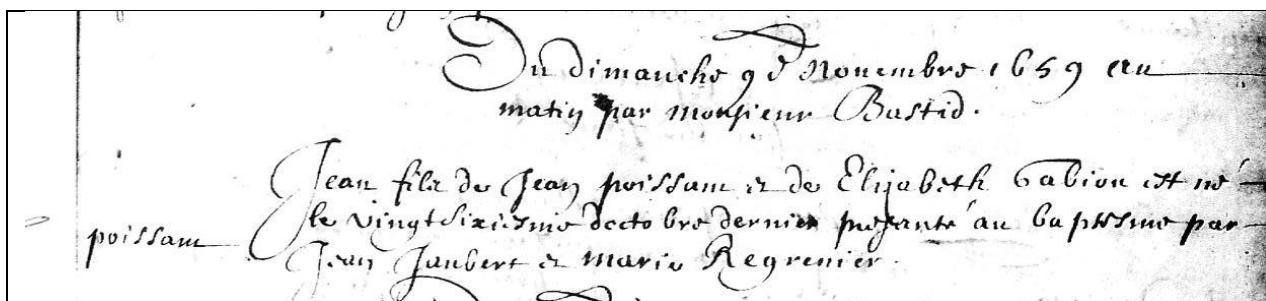 Du dimanche 9e Nouembre 1659 au
matin par Monsieur Bastid.
Jean filz de Jean poissam et de Elizabeth Gabion est né
le vingt sixiesme doctobre dernier presanté au baptesme par
poissam
Jean Jaubert et marie Regrenier.